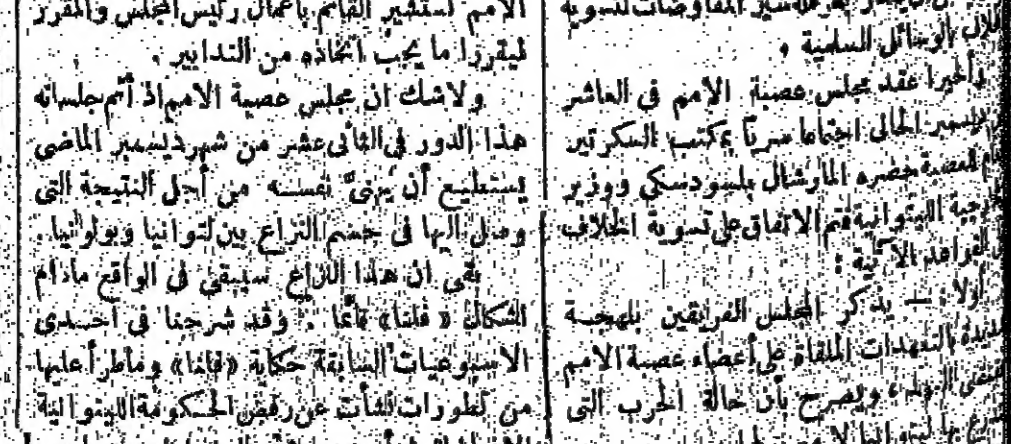 سير المفاوضات لتسوية
الوسائل السلمية .
وأخيرا عقد مجلس عصبة الامم فى العاشر
ديسمبر الحالى اجتماعا سريا بمكتب السكرتير
العصبة حضره المارشال بلسودسكى ووزير
الليتوانية فتم الاتفاق على تسوية الخلاف
القواعد الآتية :
أولا : — يذكر المجلس الفريقين بلهجة
التعهدات الملقاة على أعضاء عصبة الامم
ويصرح بأن حالة الحرب التى
الامم لتستشير القائم باعمال رئيس المجلس والمقرر
ليقرروا ما يجب اتخاذه من التدابير .
ولا شك ان مجلس عصبة الامم اذ أتم جلساته
هذا الدور فى الثانى عشر من شهر ديسمبر الماضى
يستطيع أن يهنئ نفسه من أجل النتيجة التى
وصل اليها فى حسم النزاع بين لتوانيا وبولونيا .
بقى ان هذا النزاع سيبقى فى الواقع مادام
اشكال « فلنا » قائما . وقد شرحنا فى احدى
الاسبوعيات السابقة حكاية «فلنا» وماطرأ عليها
من تطورات نشأت عن رفض الحكومة الليتوانية